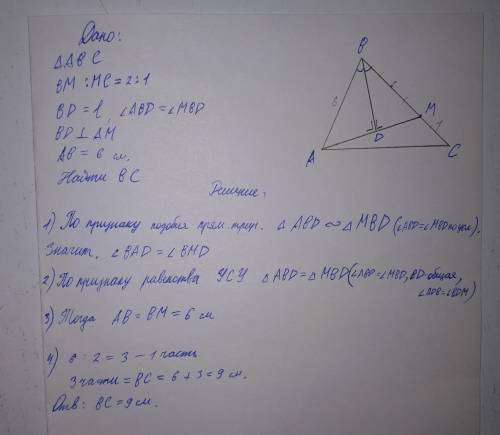 Дано:
△ABC
BM : MC = 2 : 1
BD = l, ∠ABD = ∠MBD
BD ⊥ AM
AB = 6 см,
Найти BC
Решение:
B
6
M
1
D
A
C
1) По признаку подобия прям. треуг. △ABD ∞ △MBD (∠ABD = ∠MBD по усл).
Значит, ∠BAD = ∠BMD
2) По признаку равенства УСУ △ABD = △MBD (∠ABD = ∠MBD, BD-общая,
∠ADB = ∠BDM)
3) Тогда AB = BM = 6 см
4) 6 : 2 = 3 – 1 часть
3 части = BC = 6 + 3 = 9 см.
Отв: BC = 9 см.